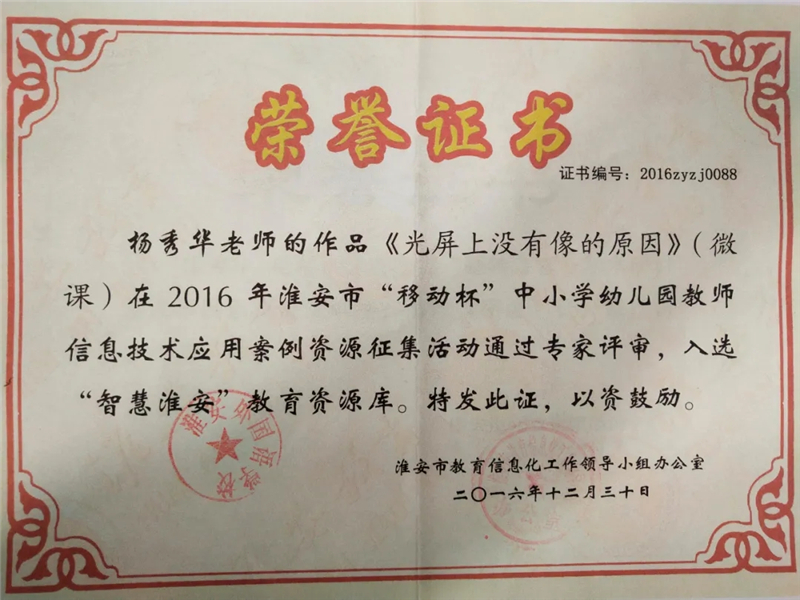 荣誉证书
证书编号：2016zyzj0088
杨秀华老师的作品《光屏上没有像的原因》（微
课）在 2016 年淮安市“移动杯”中小学幼儿园教师
信息技术应用案例资源征集活动通过专家评审，入选
“智慧淮安”教育资源库。特发此证，以资鼓励。
淮安外国语学校
淮安市教育信息化工作领导小组办公室
二〇一六年十二月三十日